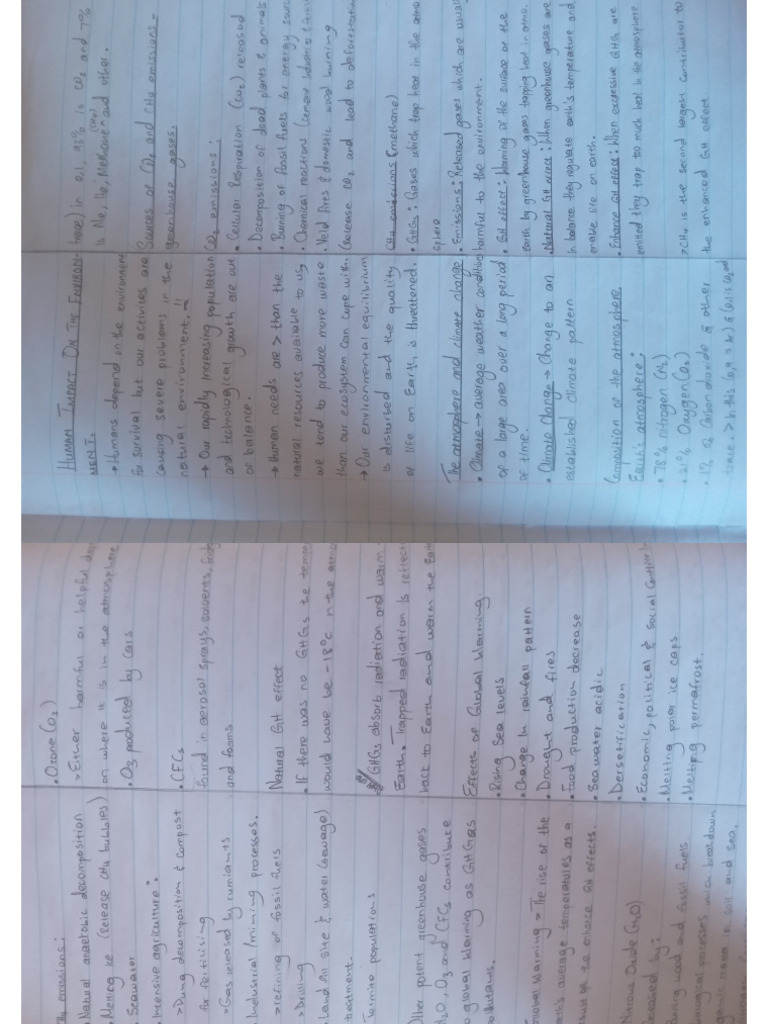 HUMAN IMPACT ON THE ENVIRON-
MENT.
→ Humans depend on the environment
for survival but our activities are
causing severe problems in the
natural environment."
→ Our rapidly increasing population
and technological growth are out
of balance.
→ Human needs are > than the
natural resources available to us,
we tend to produce more waste
than our ecosystem can cope with.
→ Our environmental equilibrium
is disturbed and the quality
of life on Earth is threatened.
The atmosphere and climate change
• Climate → average weather condition
of a large area over a long period
of time.
• Climate change → Change to an
established climate pattern
Composition of the atmosphere
Earth's atmosphere:
• 78% Nitrogen (N2)
• 21% Oxygen (O2)
• 1% of Carbon dioxide & other
in 0,1, 93% is CO2 and 7%
is Ne, He, Methane and other.
(CH4)
Sources of CO2 and CH4 emissions -
greenhouse gases.
CO2 emissions:
• Cellular Respiration (CO2) released
• Decomposition of dead plants & animals
• Burning of fossil fuels for energy
• Chemical reactions (cement industries
• Veld fires & domestic wood burning
(release CO2 and lead to deforestation
CH4 emissions (methane)
• GHGs: Gases which trap heat in the atmo
sphere
• Emissions: Released gases which are usually
harmful to the environment.
• GH effect: Warming of the surface of the
earth by greenhouse gases trapping heat in atmo.
• Natural GH effect: When greenhouse gases are
in balance they regulate earth's temperature and
make life on earth.
• Enhance GH effect: When expressive GHGs are
emitted they trap too much heat in the atmosphere
> CH4 is the second largest contributor to
the enhanced GH effect
emissions:
Natural anaerobic decomposition
Melting ice (release CH4 bubbles)
• Seawater
• Intensive agriculture:
> Dung decomposition & compost
for fertilising
> Gas released by rumiants
Industrial/mining processes.
> refining of fossil fuels
> Drilling
Land fill site & water (sewage)
treatment.
Termite populations
Other potent greenhouse gases
H2O, O3 and CFCs contribute
to global warming as GHGs
pollutants.
Global Warming > The rise of the
earth's average temperatures as a
result of the enhance GH effects.
Nitrous Oxide (N2O)
released by:
burning wood and fossil fuels
biological processes which breakdown
in soil and sea.
• Ozone (O3)
> Either harmful or helpful
on where it is in the atmosphere
• O3 produced by cars
• CFCs
found in aerosol sprays, solvents,
and foams
Natural GH effect
• If there was no GHGs the temp
would have be -18°C n the
GHGs absorb radiation and warm
Earth. Trapped radiation is reflect
back to Earth and warm the Earth
Effects of Global Warming
• Rising Sea levels
• Change in rainfall pattern
• Drought and fires
• Food production decrease
• Seawater acidic
• Dersetification
• Economic, political & Social
• Melting polar ice caps
• Melting permafrost.